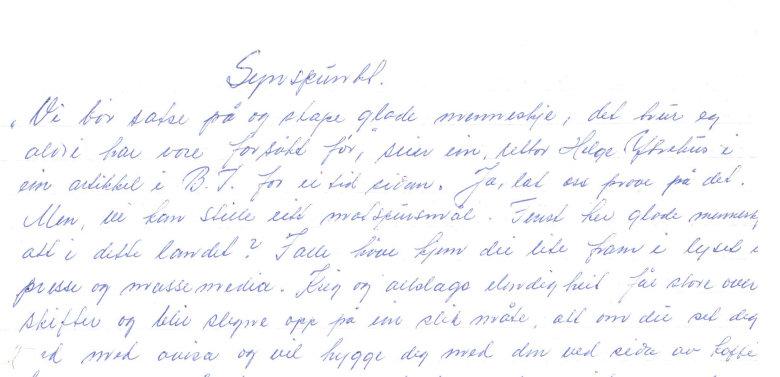 Synspunkt.
"Vi bør satse på og skape glade menneskje, det trur eg
aldri har vore forsøkt før," seier ein, rektor Helge Ytrehus i
ein artikkel i B.T. for ei tid sidan. Ja, lat oss prøve på det.
Men, vi kan stille eitt motspursmål. Finst her glade mennesk
att i dette landet? I alle høve kjem dei lite fram i lyset i
presse og massemedia. Krig og allslags elendigheit får store over
skifter og blir slegne opp på ein slik måte, att om du set deg
ed med avisa og vil hygge deg med den ved sida av kaffi